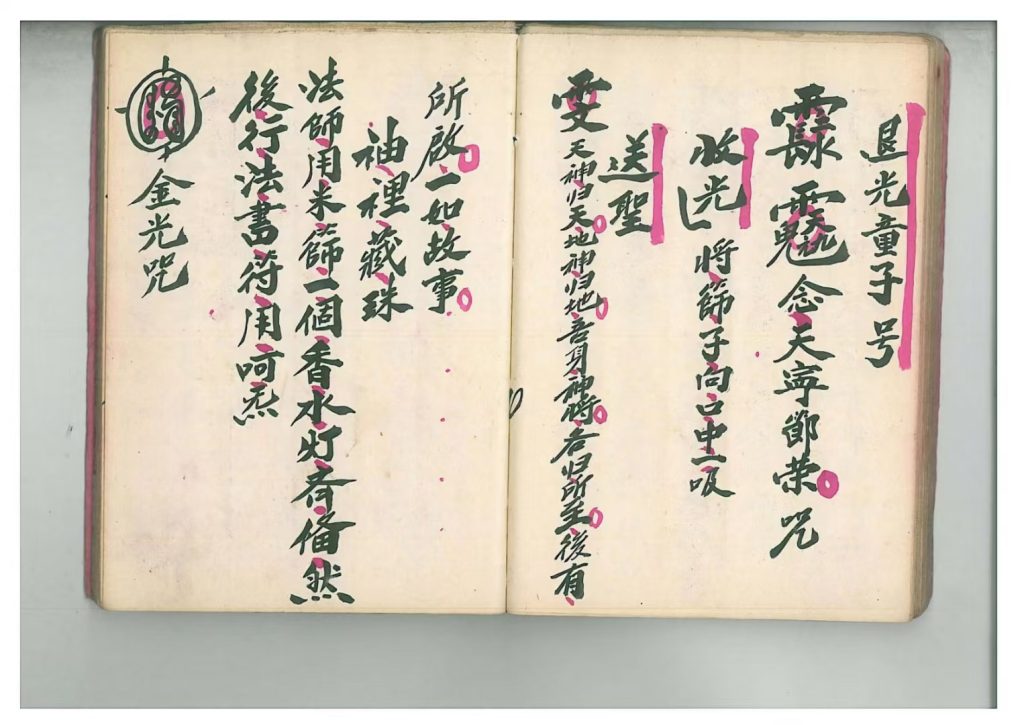 光童子号
念天寧鄧荣咒
收光 將篩子向口中一吸
送聖
天神归天地神归地吾身神將各归所至後有
所啟一如故事
袖裡藏珠
法師用米篩一個香水灯斉俻然
後行法書符用呵炁
金光咒